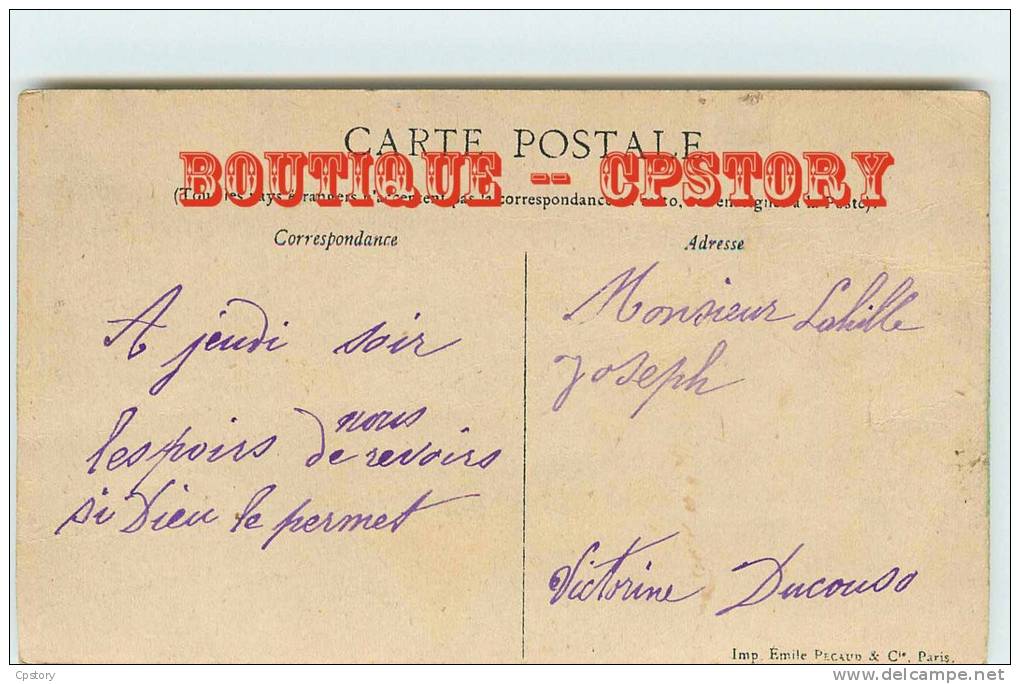 CARTE POSTALE
BOUTIQUE -- CPSTORY
(Tous les pays étrangers n'acceptent pas la correspondance au recto, se renseigner à la Poste).
Correspondance
Adresse
A jeudi soir
lespoirs de nous revoirs
si Dieu le permet
Monsieur Lahille
Joseph
Victorine Ducouso
Imp. Émile PECAUD & Cie, Paris.
Cpstory
delcampe.net